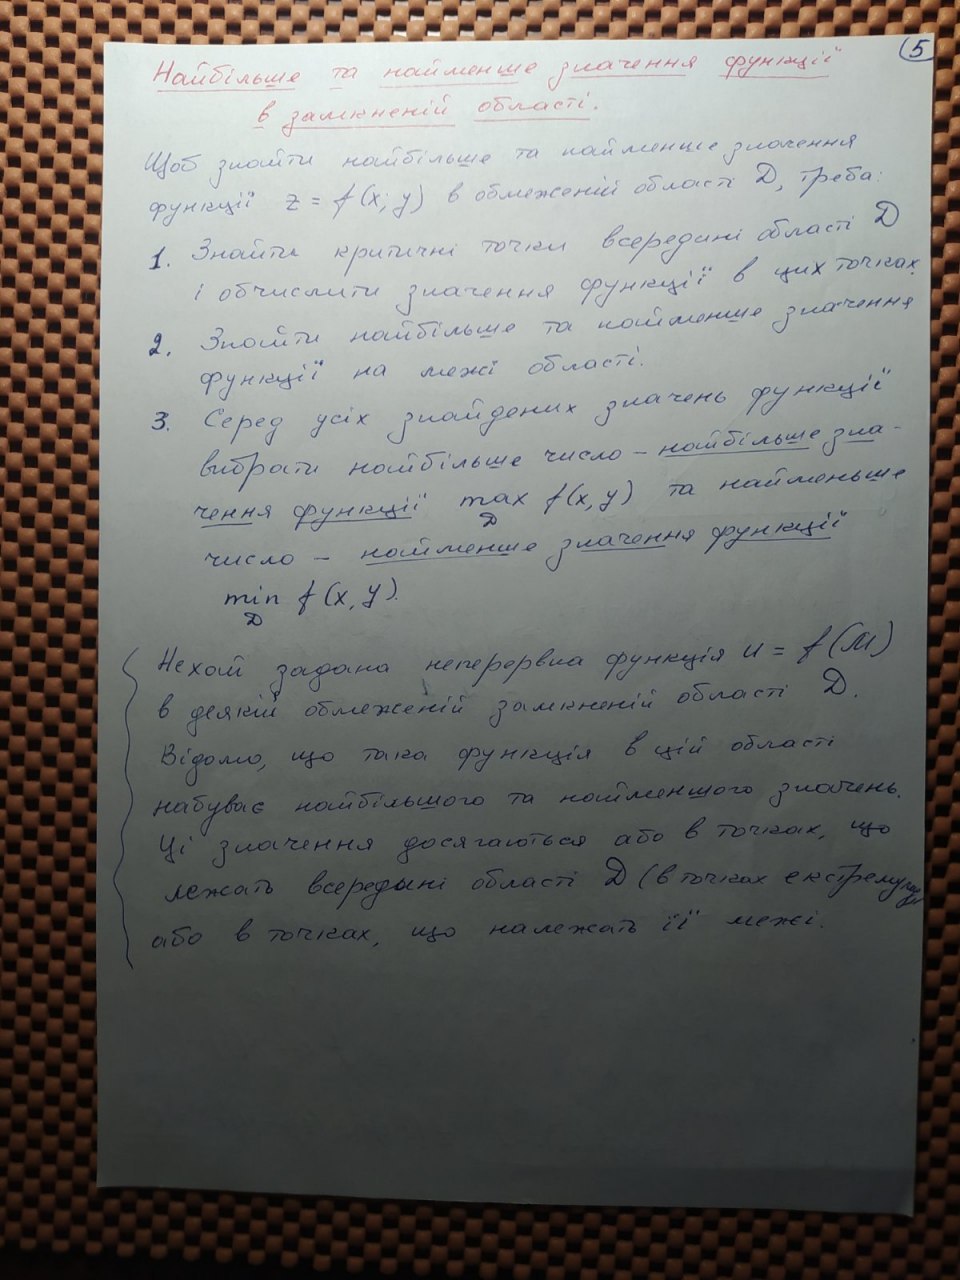 5
Найбільше та найменше значення функції
в замкненій області.
Щоб знайти найбільше та найменше значення
функції z = f(x; y) в обмеженій області D, треба:
1. Знайти критичні точки всередині області D
і обчислити значення функції в цих точках.
2. Знайти найбільше та найменше значення
функції на межі області.
3. Серед усіх знайдених значень функції
вибрати найбільше число – найбільше зна-
чення функції max f(x, y) та найменьше
D
число – найменше значення функції
min f(x, y).
D
Нехай задана неперервна функція u = f(M)
в деякій обмеженій замкненій області D.
Відомо, що така функція в цій області
набуває найбільшого та найменшого значень.
Ці значення досягаються або в точках, що
лежать всередині області D (в точках екстремуму)
або в точках, що належать її межі.